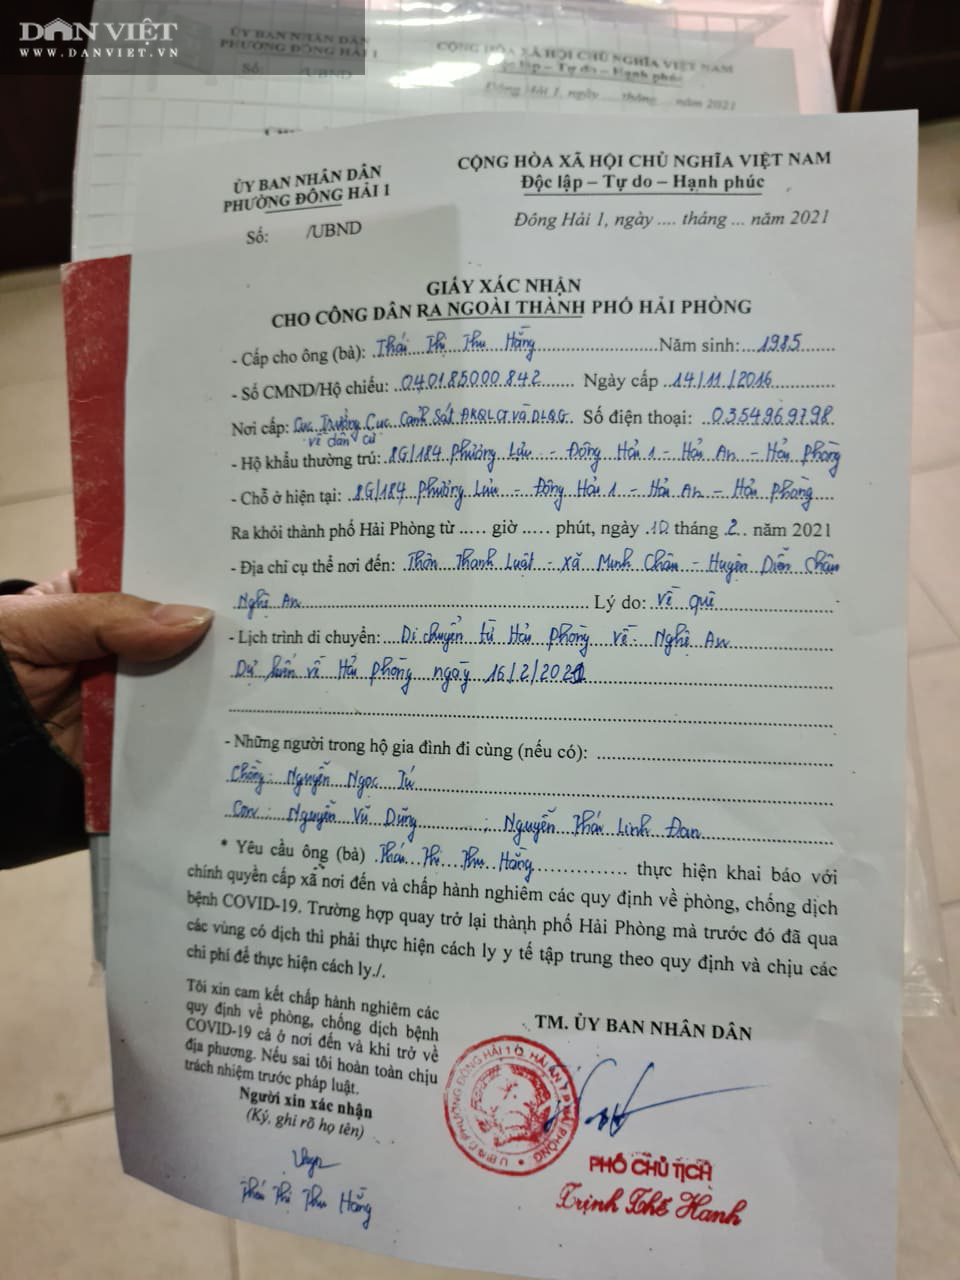 DÂN VIỆT
WWW.DANVIET.VN
ỦY BAN NHÂN DÂN
PHƯỜNG ĐÔNG HẢI 1
CỘNG HÒA XÃ HỘI CHỦ NGHĨA VIỆT NAM
Độc lập – Tự do – Hạnh phúc
Số: /UBND
Đông Hải 1, ngày .... tháng ... năm 2021
ỦY BAN NHÂN DÂN
PHƯỜNG ĐÔNG HẢI 1
CỘNG HÒA XÃ HỘI CHỦ NGHĨA VIỆT NAM
Độc lập – Tự do – Hạnh phúc
Số: /UBND
Đông Hải 1, ngày .... tháng ... năm 2021
GIẤY XÁC NHẬN
CHO CÔNG DÂN RA NGOÀI THÀNH PHỐ HẢI PHÒNG
- Cấp cho ông (bà): Thái Thị Thu Hằng Năm sinh: 1985
- Số CMND/Hộ chiếu: 040185000842 Ngày cấp 14/11/2016
Nơi cấp: Cục Trưởng Cục Cảnh Sát ĐKQLCT và DLQG Số điện thoại: 0354969798
về dân cư
- Hộ khẩu thường trú: 8G/184 Phương Lưu - Đông Hải 1 - Hải An - Hải Phòng
- Chỗ ở hiện tại: 8G/184 Phương Lưu - Đông Hải 1 - Hải An - Hải Phòng
Ra khỏi thành phố Hải Phòng từ ..... giờ ..... phút, ngày 10 tháng 2 năm 2021
- Địa chỉ cụ thể nơi đến: Thôn Thanh Luật - xã Minh Châu - Huyện Diễn Châu
Nghệ An Lý do: Về quê
- Lịch trình di chuyển: Di chuyển từ Hải Phòng về Nghệ An
Dự kiến về Hải Phòng ngày 16/2/2021
- Những người trong hộ gia đình đi cùng (nếu có):
Chồng: Nguyễn Ngọc Tú
Con: Nguyễn Vũ Dũng ; Nguyễn Thái Linh Đan
* Yêu cầu ông (bà) Thái Thị Thu Hằng thực hiện khai báo với
chính quyền cấp xã nơi đến và chấp hành nghiêm các quy định về phòng, chống dịch
bệnh COVID-19. Trường hợp quay trở lại thành phố Hải Phòng mà trước đó đã qua
các vùng có dịch thì phải thực hiện cách ly y tế tập trung theo quy định và chịu các
chi phí để thực hiện cách ly./.
Tôi xin cam kết chấp hành nghiêm các
quy định về phòng, chống dịch bệnh
COVID-19 cả ở nơi đến và khi trở về
địa phương. Nếu sai tôi hoàn toàn chịu
trách nhiệm trước pháp luật.
Người xin xác nhận
(Ký, ghi rõ họ tên)
Thái Thị Thu Hằng
TM. ỦY BAN NHÂN DÂN
U.B.N.D PHƯỜNG ĐÔNG HẢI 1 Q. HẢI AN T.P HẢI PHÒNG
PHÓ CHỦ TỊCH
Trịnh Thế Hanh